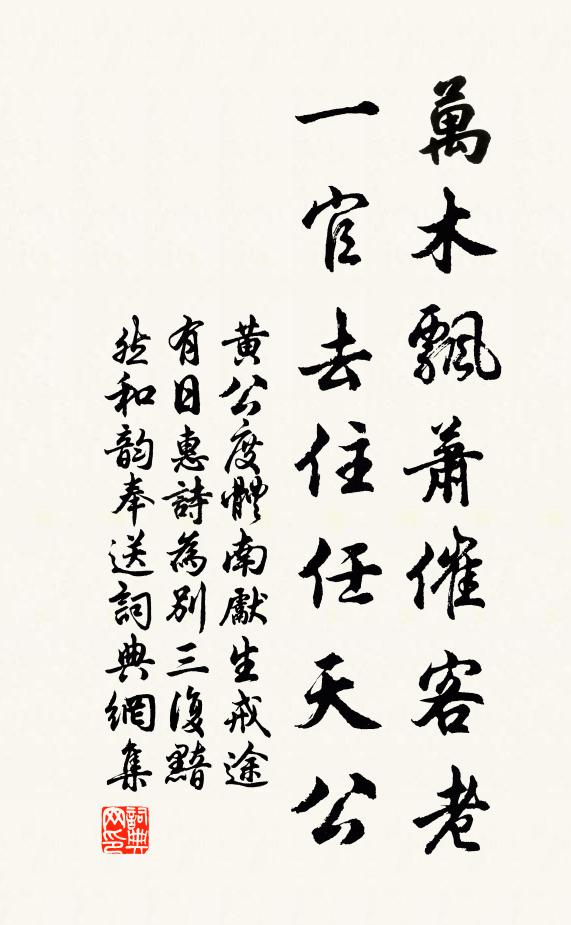 萬木飄蕭催客老
一官去住任天公
黄公度體南獻生戒途
有日惠詩為别三復黯
然和韵奉送詞典網集
詞典网印